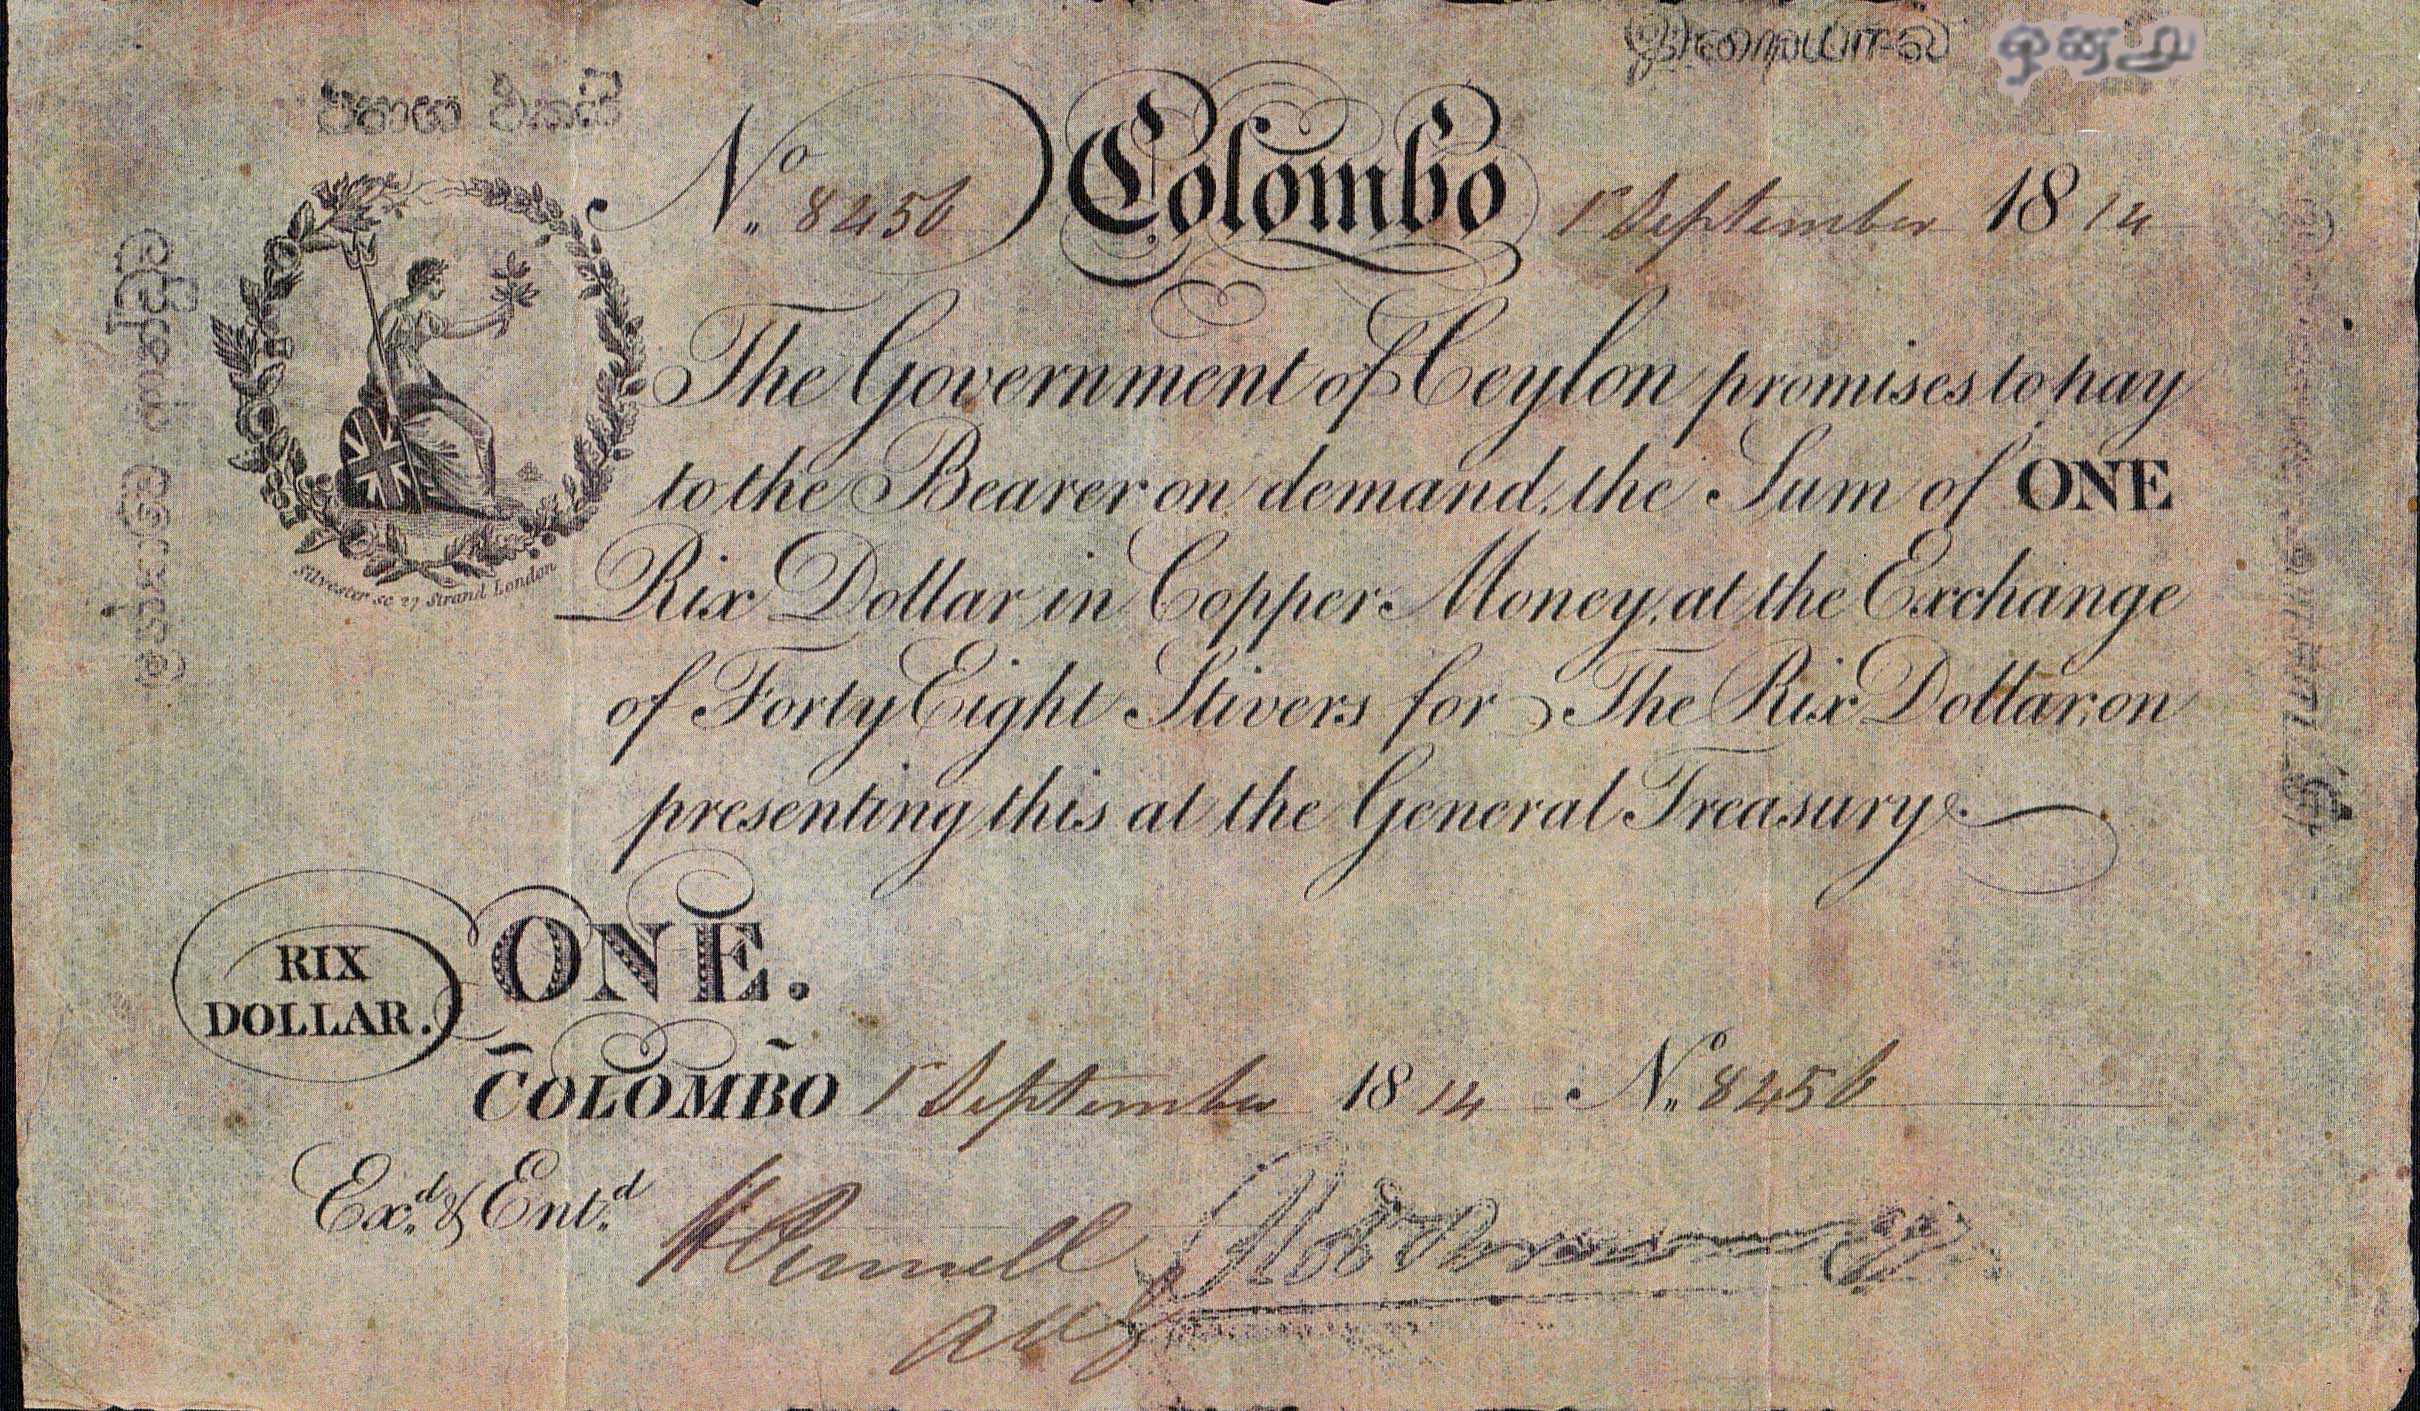 No. 8456 Colombo 1st September 1814
The Government of Ceylon promises to pay
to the Bearer on demand, the Sum of ONE
Rix Dollar in Copper Money, at the Exchange
of Forty Eight Stivers for The Rix Dollar, on
presenting this at the General Treasury.
Silvester sc 27 Strand London
RIX
DOLLAR.
ONE.
COLOMBO 1st September 1814 No. 8456
Exd. & Entd.